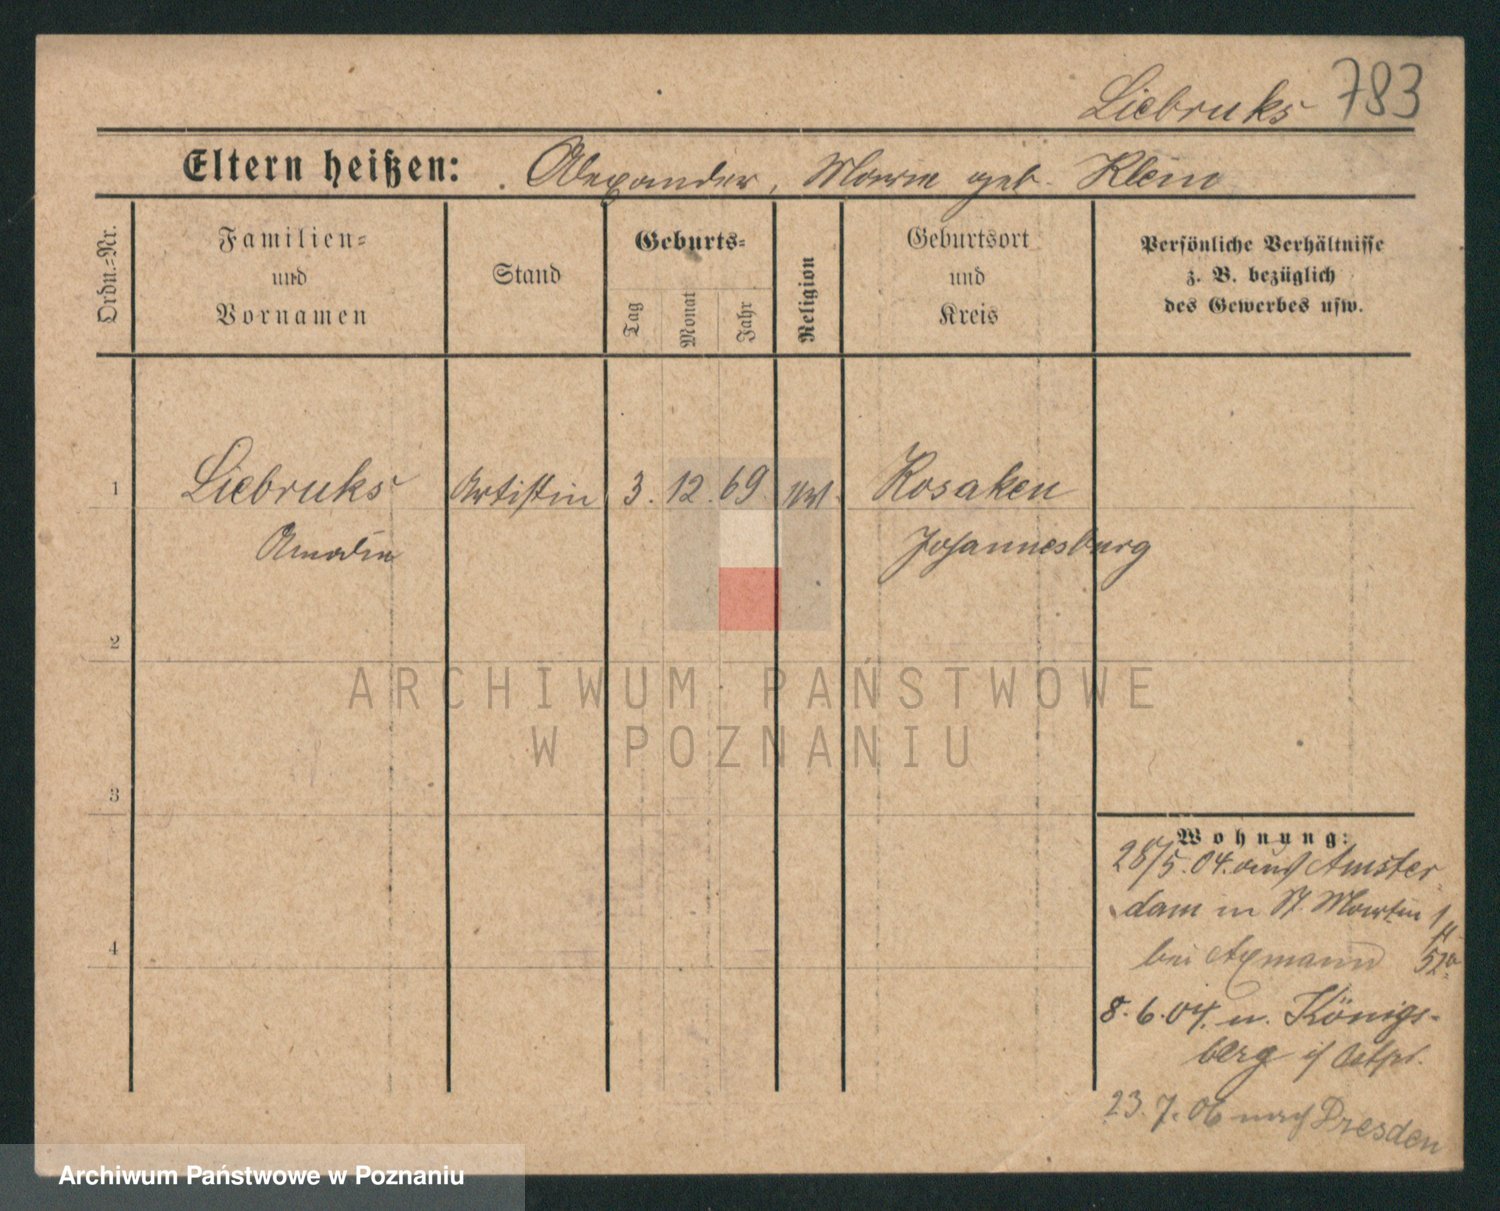 Liebruks 783
Eltern heißen: Alexander, Marie geb. Klein
Ordn.-Nr.
Familien-
und
Vornamen
Stand
Geburts-
Tag
Monat
Jahr
Religion
Geburtsort
und
Kreis
Persönliche Verhältnisse
z. B. bezüglich
des Gewerbes usw.
1 Liebruks Artistin 3. 12. 69. Rosaken
Amalie Johannesburg
2
ARCHIWUM PAŃSTWOWE
W POZNANIU
3
4
Wohnung:
28/5. 04. aus Amster
dam in St Martin
bei Axmann
8. 6. 04. n. Königs-
berg i/ Ostpr.
23. 7. 06 nach Dresden
Archiwum Państwowe w Poznaniu